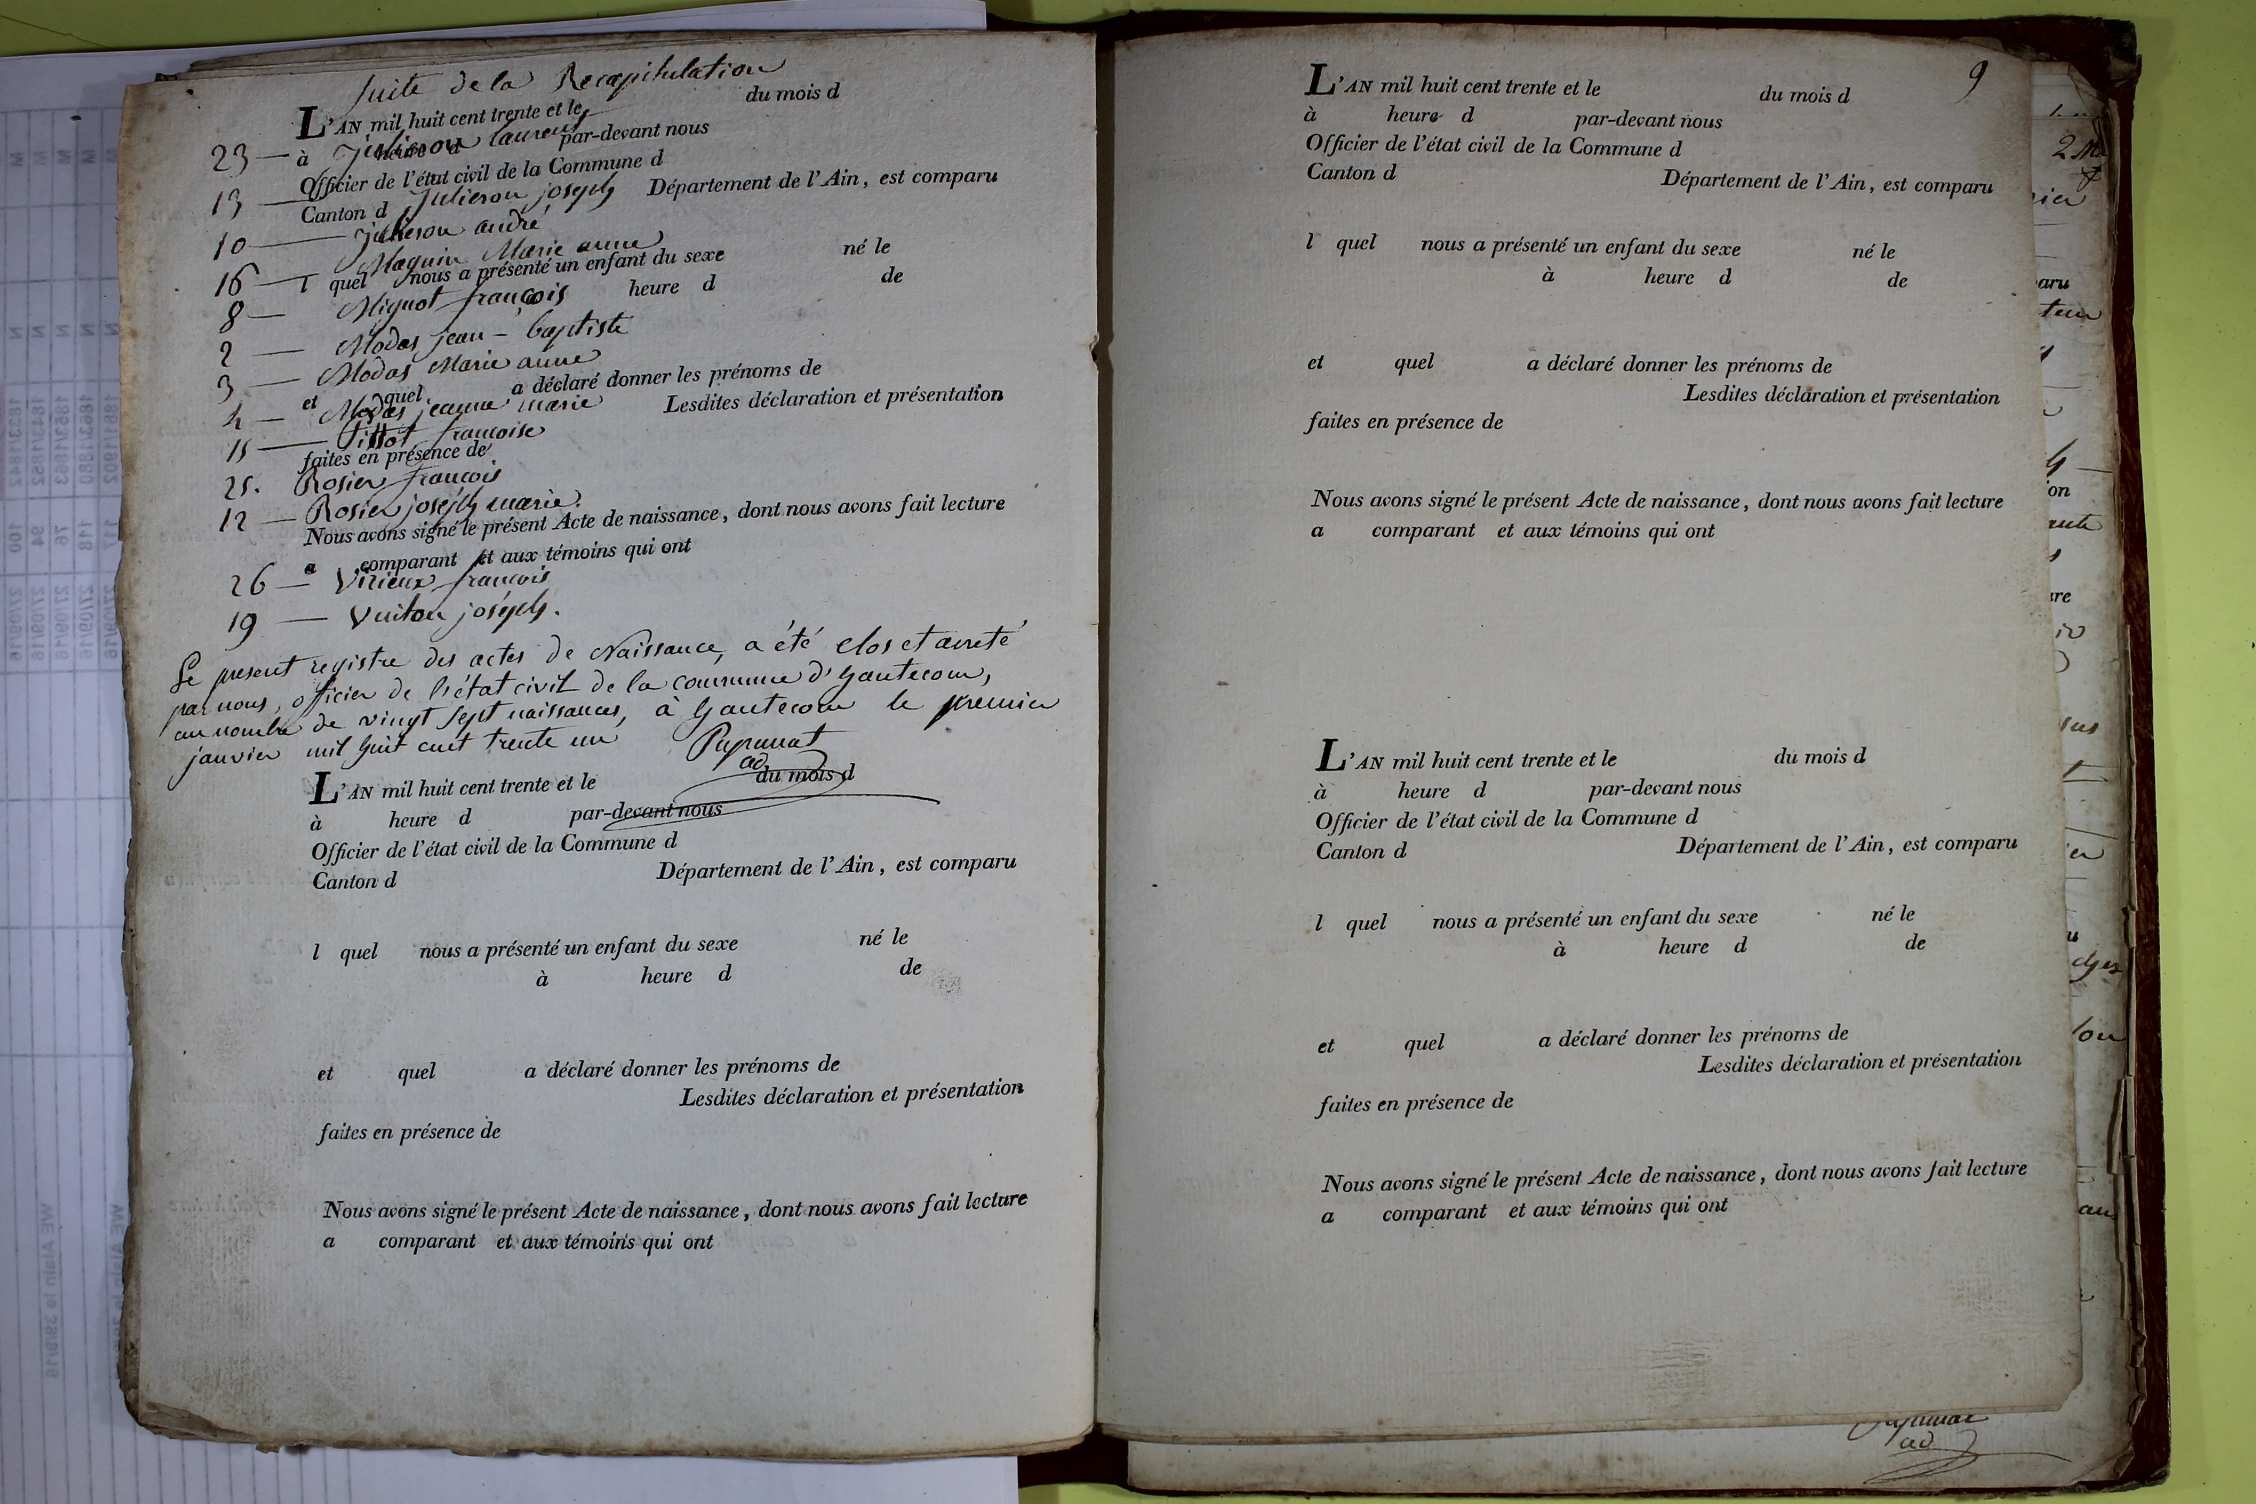 Suite de la Recapitulation
L'AN mil huit cent trente et le du mois d
23 — Julieron laurent
à heure d par-devant nous
Officier de l'état civil de la Commune d
13 — Julieron joseph
Canton d Département de l'Ain, est comparu
10 — Julieron andré
16 — Maguin Marie anne
l quel nous a présenté un enfant du sexe né le
8 — Mignot françois
heure d de
2 — Modas jean-baptiste
3 — Modas Marie anne
et quel a déclaré donner les prénoms de
4 — Modas jeanne marie
Lesdites déclaration et présentation
15 — Pittot françoise
faites en présence de
25. Rosier françois
12 — Rosier joseph marie.
Nous avons signé le présent Acte de naissance, dont nous avons fait lecture
a comparant et aux témoins qui ont
26 — Virieux françois
19 — Vuiton joseph.
Le present registre des actes de Naissance, a été clos et arreté
par nous, officier de l'état civil de la commune d'hautecour,
au nombre de vingt sept naissances, à hautecour le premier
janvier mil huit cent trente un
ad
L'AN mil huit cent trente et le du mois d
à heure d par-devant nous
Officier de l'état civil de la Commune d
Canton d Département de l'Ain, est comparu
l quel nous a présenté un enfant du sexe né le
à heure d de
et quel a déclaré donner les prénoms de
Lesdites déclaration et présentation
faites en présence de
Nous avons signé le présent Acte de naissance, dont nous avons fait lecture
a comparant et aux témoins qui ont
9
L'AN mil huit cent trente et le du mois d
à heure d par-devant nous
Officier de l'état civil de la Commune d
Canton d Département de l'Ain, est comparu
l quel nous a présenté un enfant du sexe né le
à heure d de
et quel a déclaré donner les prénoms de
Lesdites déclaration et présentation
faites en présence de
Nous avons signé le présent Acte de naissance, dont nous avons fait lecture
a comparant et aux témoins qui ont
L'AN mil huit cent trente et le du mois d
à heure d par-devant nous
Officier de l'état civil de la Commune d
Canton d Département de l'Ain, est comparu
l quel nous a présenté un enfant du sexe né le
à heure d de
et quel a déclaré donner les prénoms de
Lesdites déclaration et présentation
faites en présence de
Nous avons signé le présent Acte de naissance, dont nous avons fait lecture
a comparant et aux témoins qui ont
ad